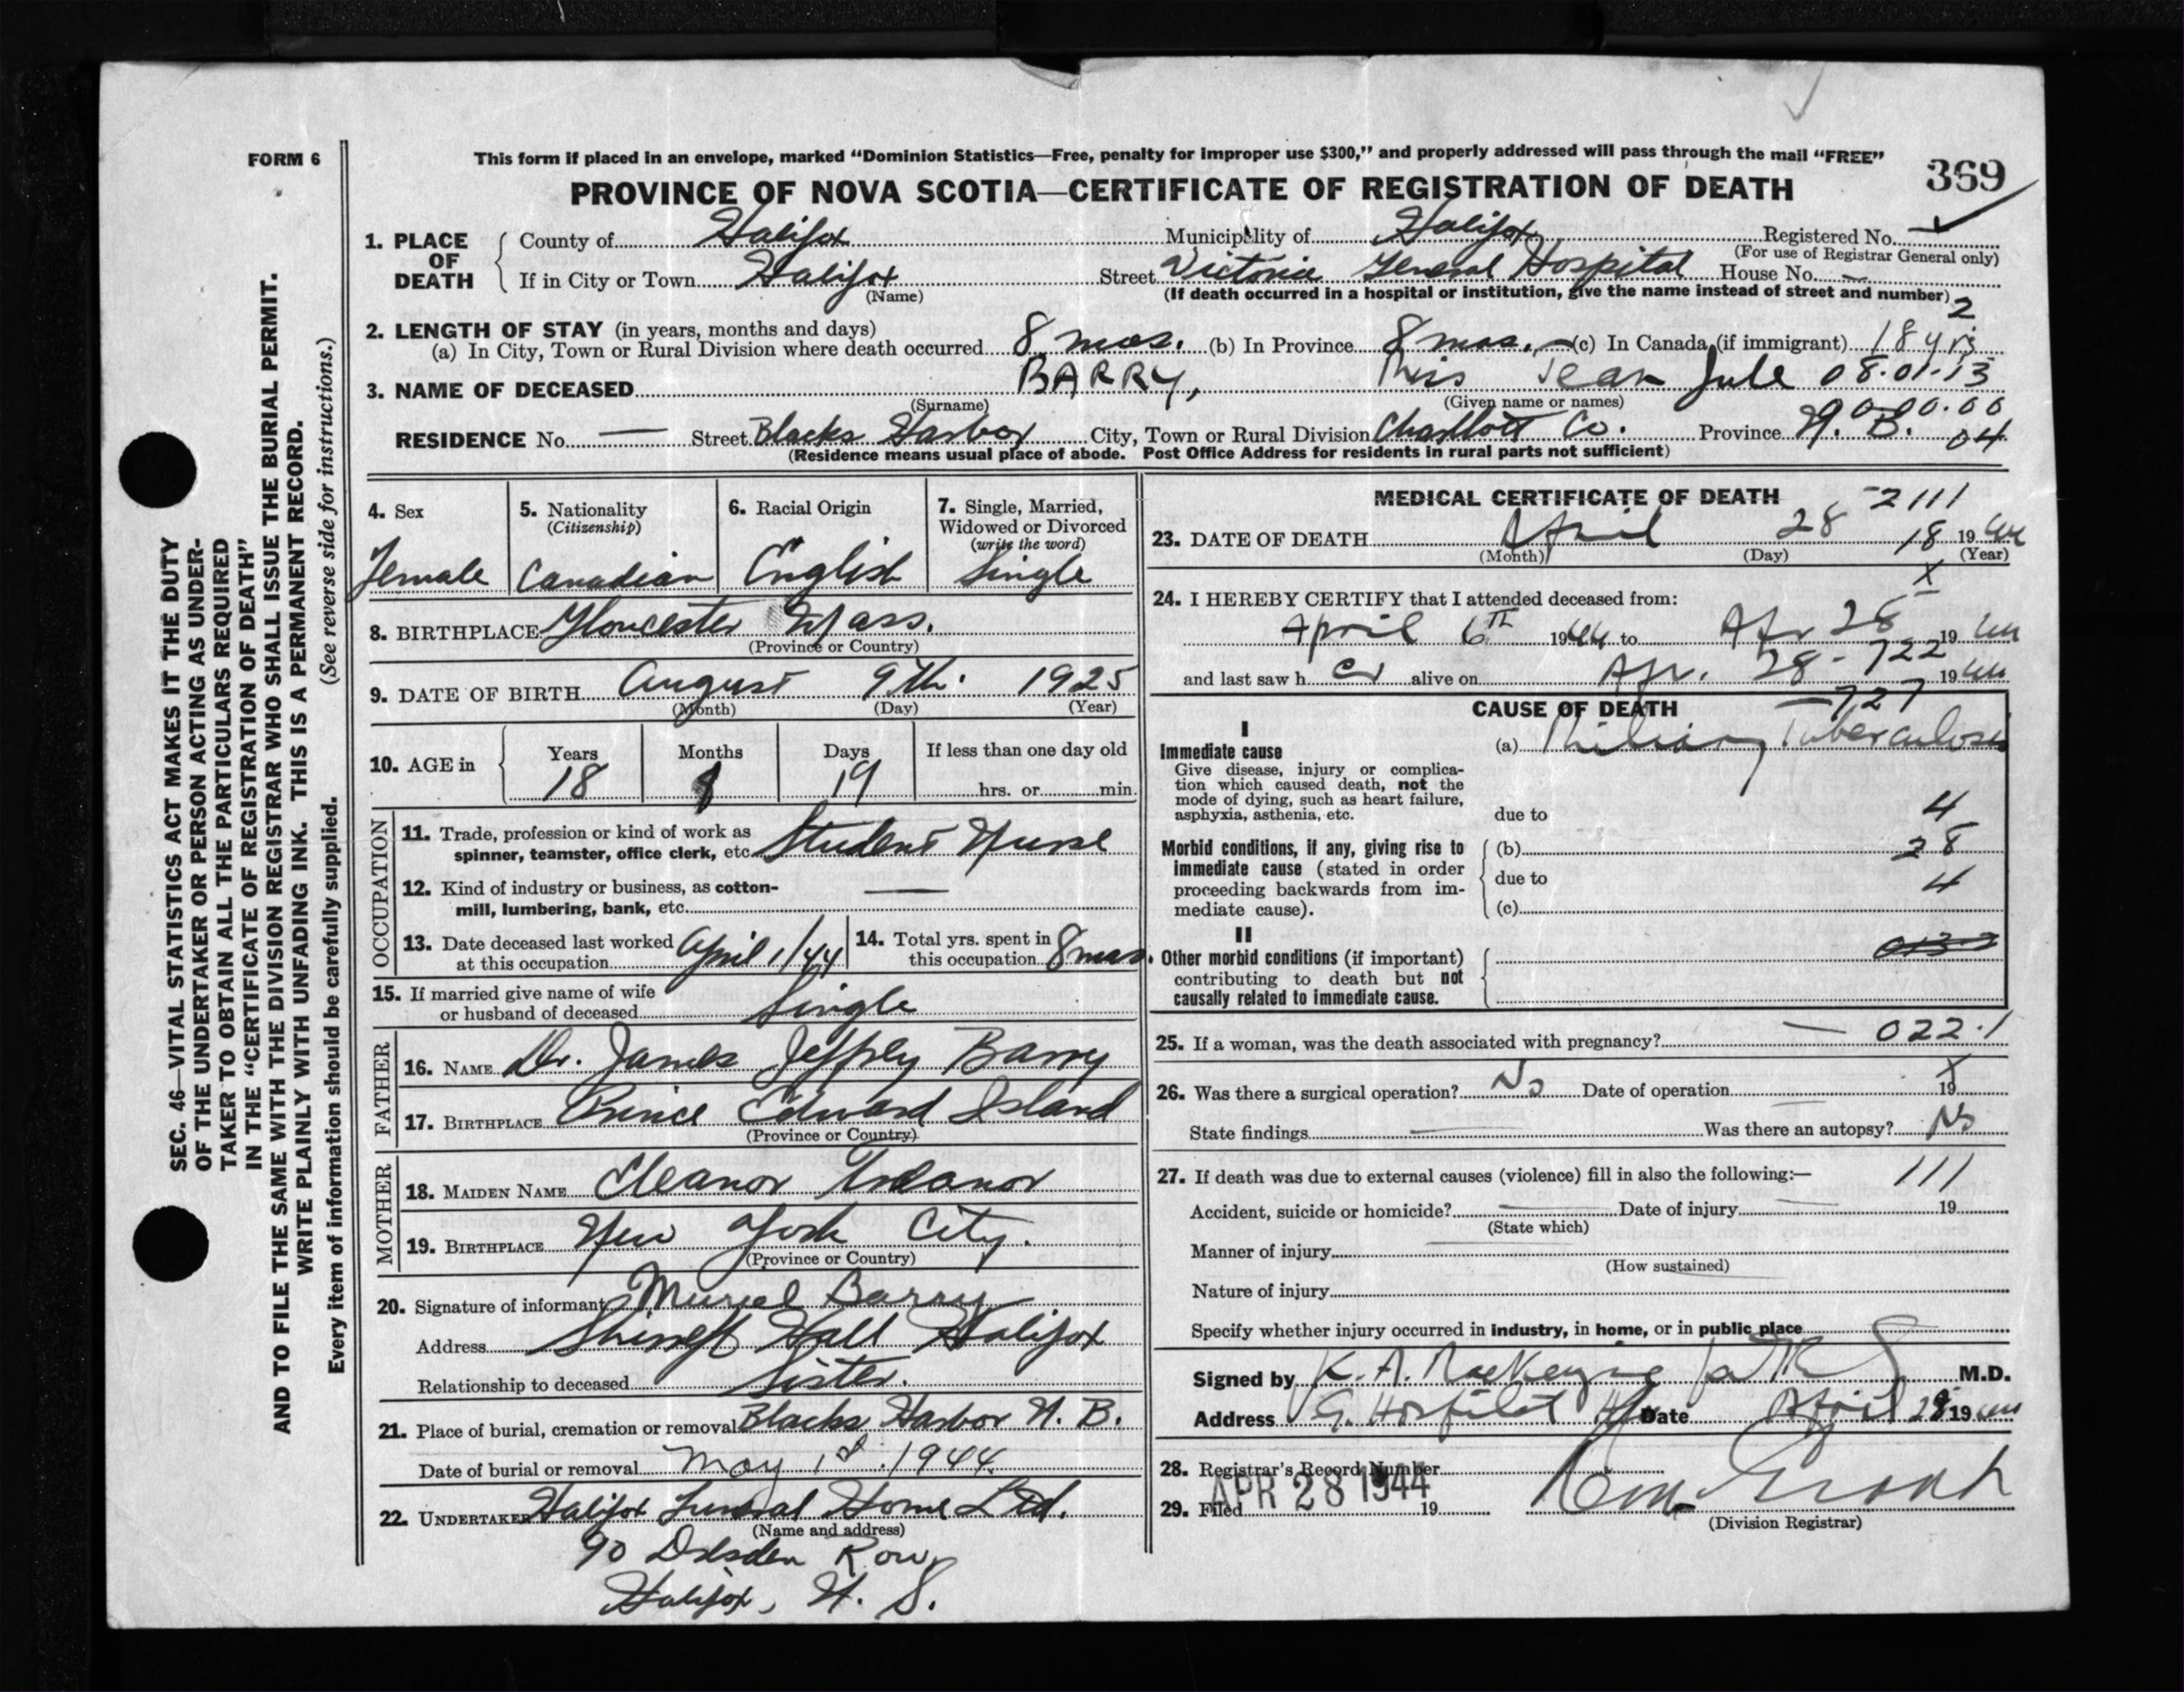 FORM 6
This form if placed in an envelope, marked “Dominion Statistics—Free, penalty for improper use $300,” and properly addressed will pass through the mail “FREE”
369
PROVINCE OF NOVA SCOTIA—CERTIFICATE OF REGISTRATION OF DEATH
SEC. 46—VITAL STATISTICS ACT MAKES IT THE DUTY
OF THE UNDERTAKER OR PERSON ACTING AS UNDER-
TAKER TO OBTAIN ALL THE PARTICULARS REQUIRED
IN THE “CERTIFICATE OF REGISTRATION OF DEATH”
AND TO FILE THE SAME WITH THE DIVISION REGISTRAR WHO SHALL ISSUE THE BURIAL PERMIT.
WRITE PLAINLY WITH UNFADING INK. THIS IS A PERMANENT RECORD.
Every item of information should be carefully supplied. (See reverse side for instructions.)
1. PLACE OF DEATH County of Halifax Municipality of Halifax Registered No.
(For use of Registrar General only)
If in City or Town Halifax Street Victoria General Hospital House No. —
(Name) (If death occurred in a hospital or institution, give the name instead of street and number)
2
2. LENGTH OF STAY (in years, months and days)
(a) In City, Town or Rural Division where death occurred 8 mos. (b) In Province 8 mos. — (c) In Canada (if immigrant) 18 yrs
3. NAME OF DECEASED BARRY, Miss Jean Jule 08.01.13
(Surname) (Given name or names)
90.00.00
RESIDENCE No. — Street Blacks Harbor City, Town or Rural Division Charllott Co. Province N. B. 04
(Residence means usual place of abode. Post Office Address for residents in rural parts not sufficient)
4. Sex
Female
5. Nationality
(Citizenship)
Canadian
6. Racial Origin
English
7. Single, Married,
Widowed or Divorced
(write the word)
Single
8. BIRTHPLACE Gloucester Mass.
(Province or Country)
9. DATE OF BIRTH August 9th. 1925
(Month) (Day) (Year)
10. AGE in Years Months Days If less than one day old
18 8 19 hrs. or min.
OCCUPATION
11. Trade, profession or kind of work as
spinner, teamster, office clerk, etc. Student Nurse
12. Kind of industry or business, as cotton-
mill, lumbering, bank, etc. —
13. Date deceased last worked
at this occupation April 1/44
14. Total yrs. spent in
this occupation 8 mos.
15. If married give name of wife
or husband of deceased Single
FATHER
16. NAME Dr. James Jeffrey Barry
17. BIRTHPLACE Prince Edward Island
(Province or Country)
MOTHER
18. MAIDEN NAME Eleanor
19. BIRTHPLACE New York City.
(Province or Country)
20. Signature of informant Muriel Barry
Address Shirreff Hall Halifax
Relationship to deceased Sister.
21. Place of burial, cremation or removal Blacks Harbor N. B.
Date of burial or removal May 1st. 1944.
22. UNDERTAKER Halifax Funeral Home Ltd.
(Name and address)
90 Dresden Row,
Halifax, N. S.
MEDICAL CERTIFICATE OF DEATH
-2111
23. DATE OF DEATH April 28 18 1944
(Month) (Day) (Year)
X
24. I HEREBY CERTIFY that I attended deceased from:
April 6TH 1944 to Apr 28 1944
and last saw h er alive on Apr. 28 - 722 1944
CAUSE OF DEATH — 727
I
Immediate cause
Give disease, injury or complica-
tion which caused death, not the
mode of dying, such as heart failure,
asphyxia, asthenia, etc.
(a) Miliary Tuberculosis
due to 4
Morbid conditions, if any, giving rise to
immediate cause (stated in order
proceeding backwards from im-
mediate cause).
(b) 28
due to 4
(c)
II
Other morbid conditions (if important)
contributing to death but not
causally related to immediate cause.
25. If a woman, was the death associated with pregnancy? — 022.1
X
26. Was there a surgical operation? No Date of operation — 19
State findings — Was there an autopsy? No
27. If death was due to external causes (violence) fill in also the following:— 111
Accident, suicide or homicide? — Date of injury — 19
(State which)
Manner of injury
(How sustained)
Nature of injury
Specify whether injury occurred in industry, in home, or in public place
Signed by K. A. MacKenzie M.D.
Address V. G. Hospital Hfx Date April 28 1944
28. Registrar's Record Number
29. Filed APR 28 1944 19
(Division Registrar)